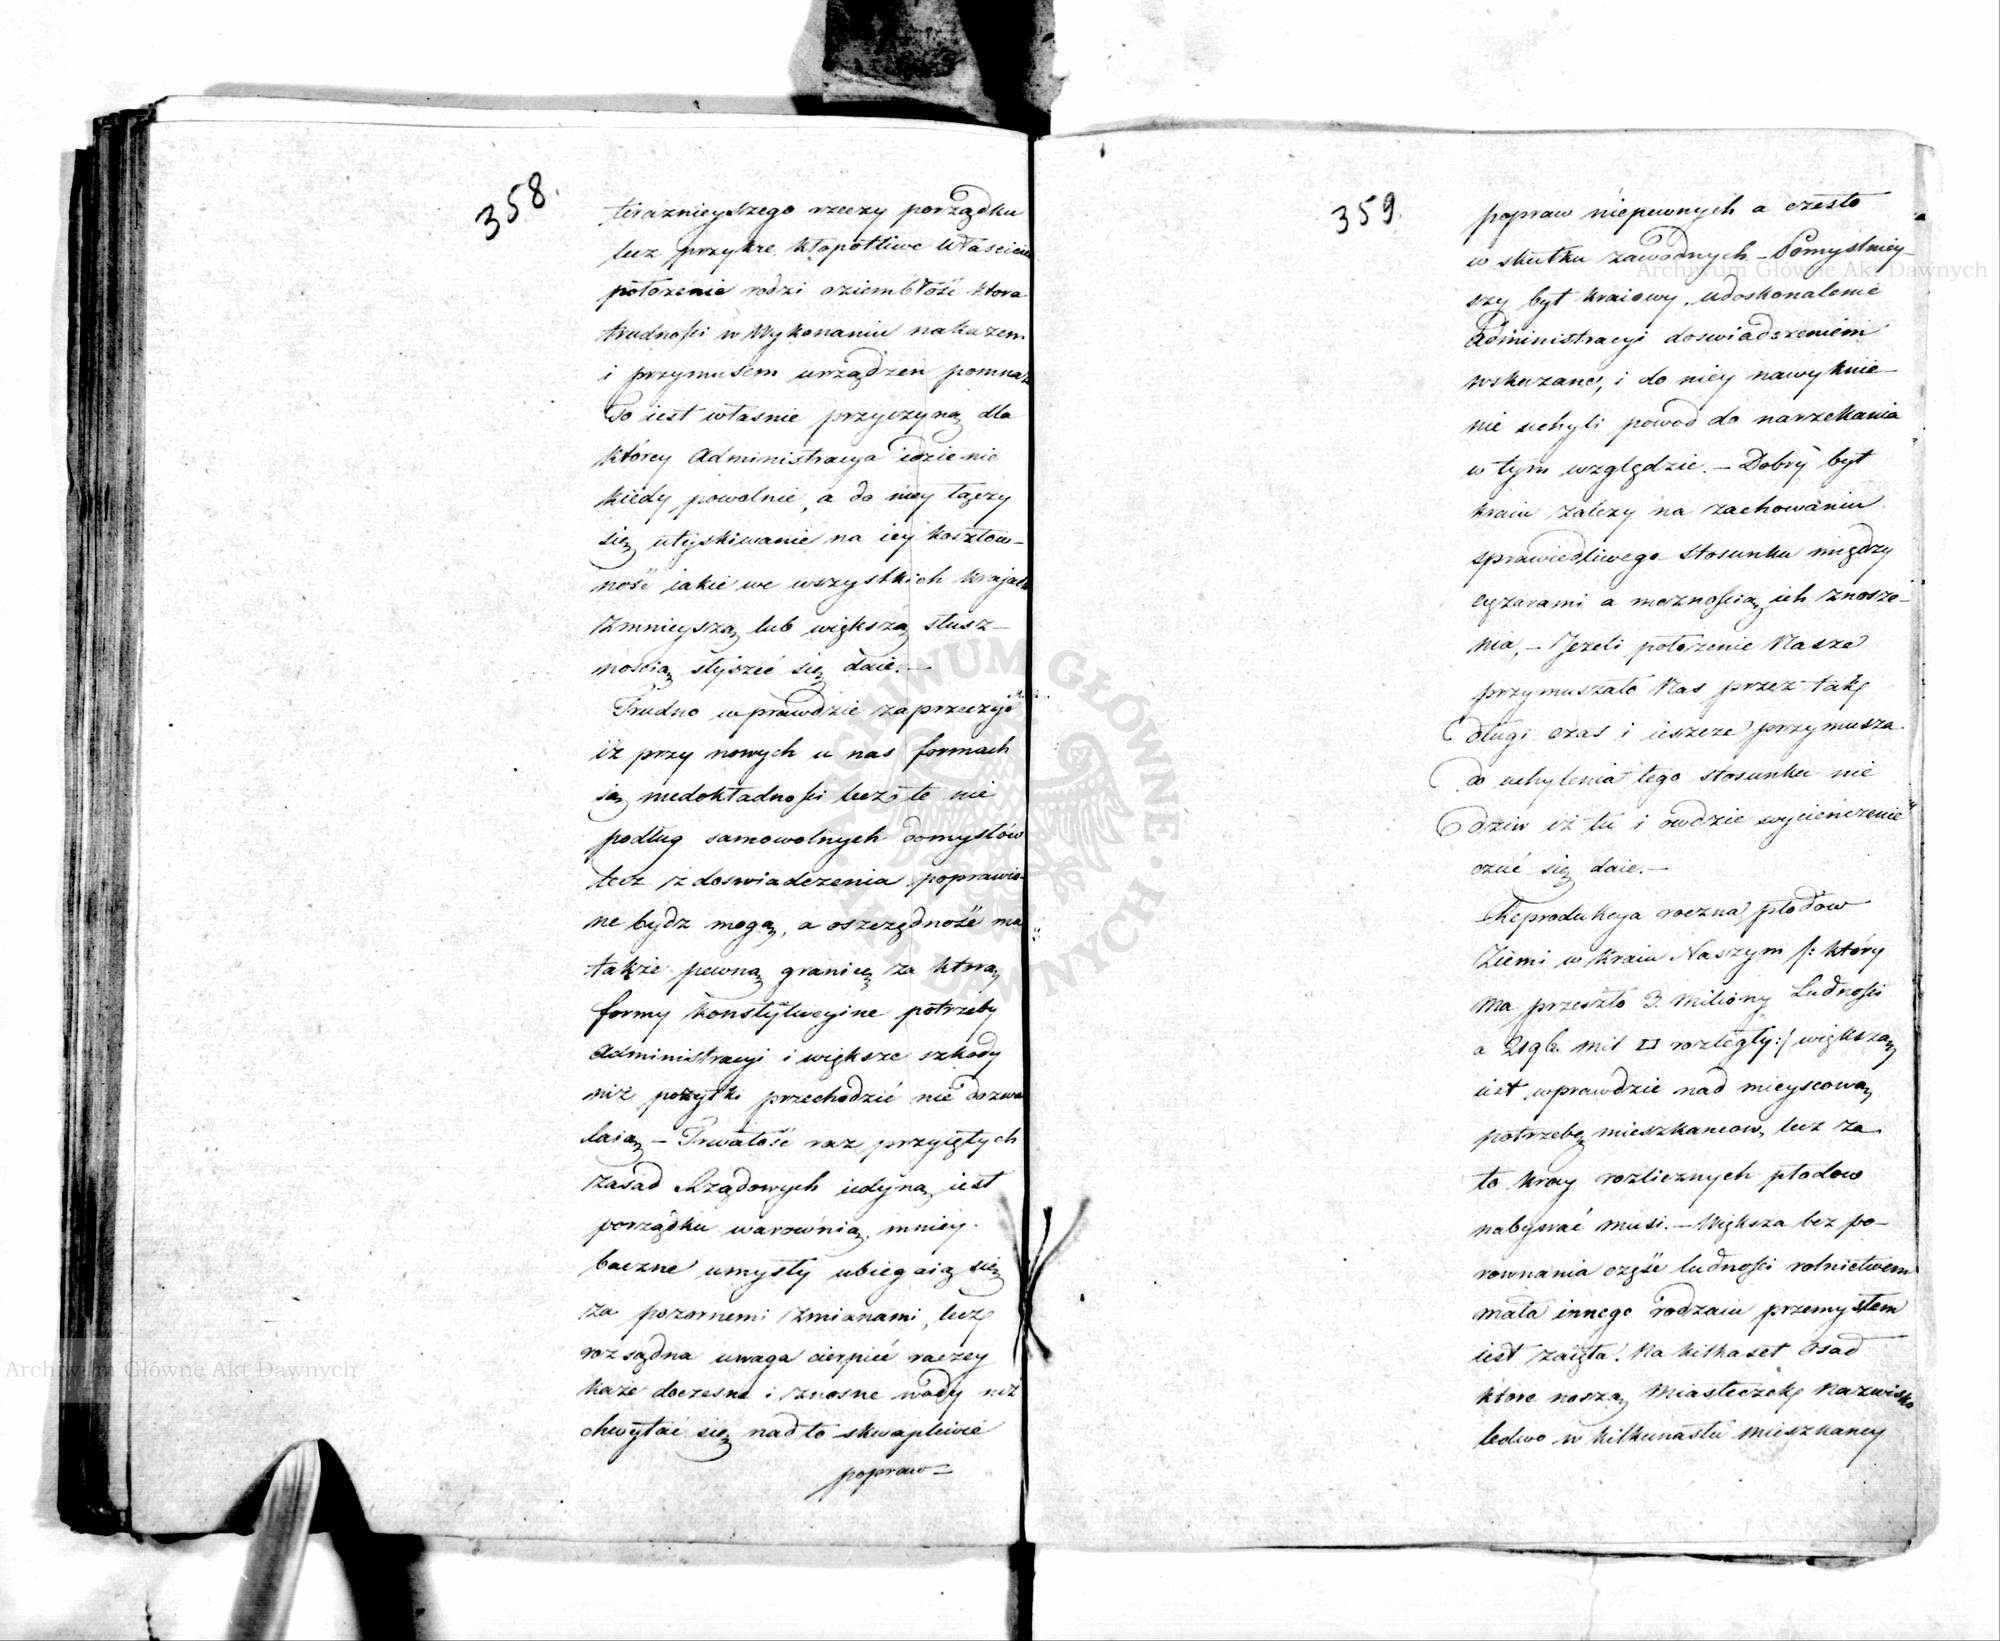 358.
teraznieyszego rzeczy porządku
lecz przykre, kłopotliwe właścicie
położenie rodzi oziembłość ktora
trudności w wykonaniu nakazem
i przymusem urządzeń pomnaż
To iest własnie przyczyną dla
którey Administracya idzie nie
kiedy powolnie, a do niey łączy
się utyskiwanie na iey kosztow-
ność iakie we wszystkich krajach
z mnieyszą lub większą słusz-
nością słyszeć się daie.—
Trudno wprawdzie zaprzeczyć
iż przy nowych u nas formach
są niedokładności lecz te nie
podług samowolnych domysłów
lecz z doswiadczenia poprawio-
ne bydz mogą, a oszczędność ma
także pewną granicę za ktorą
formy konstytucyine potrzeby
Administracyi i większe szkody
niż pożytki przechodzić nie dozwa
laią — Trwałość raz przyiętych
zasad Rządowych iedyną iest
porządku warownią, mniey
baczne umysły ubiegaią się
za pozornemi zmianami, lecz
rozsądna uwaga cierpieć raczey
każe doczesne i znosne wady niż
chwytać się nadto skwapliwie
popraw=
359.
popraw niepewnych a często
w skutku zawodnych — Pomyślniey-
szy byt kraiowy, udoskonalenie
Administracyi doswiadczeniem
wskazane, i do niey nawyknie-
nie uchyli powod do narzekania
w tym względzie. — Dobry byt
kraiu zależy na zachowaniu
sprawiedliwego stosunku między
cężarami a możnością ich znosze-
nia, — Jeżeli położenie Nasze
przymuszało Nas przez tak
długi czas i ieszcze przymusza
do uchylenia tego stosunku nie
dziw iż tu i owdzie wycieńczenie
czuć się daie.—
Reprodukcya roczna płodow
Ziemi w kraiu Naszym /: który
ma przeszło 3. miliony Ludności
a mil □ rozległy :/ większą
iest wprawdzie nad mieyscową
potrzebę mieszkancow, lecz za
to kray rozlicznych płodow
nabywać musi. — Większa bez po-
rownania część ludności rolnictwem
mała innego rodzaiu przemysłem
iest zaięta. Na kilkaset Osad
ktore noszą Miasteczek Nazwisko
ledwo w kilkunastu mieszkancy
Archiwum Główne Akt Dawnych
Archiwum Główne Akt Dawnych
ARCHIWUM GŁÓWNE AKT DAWNYCH